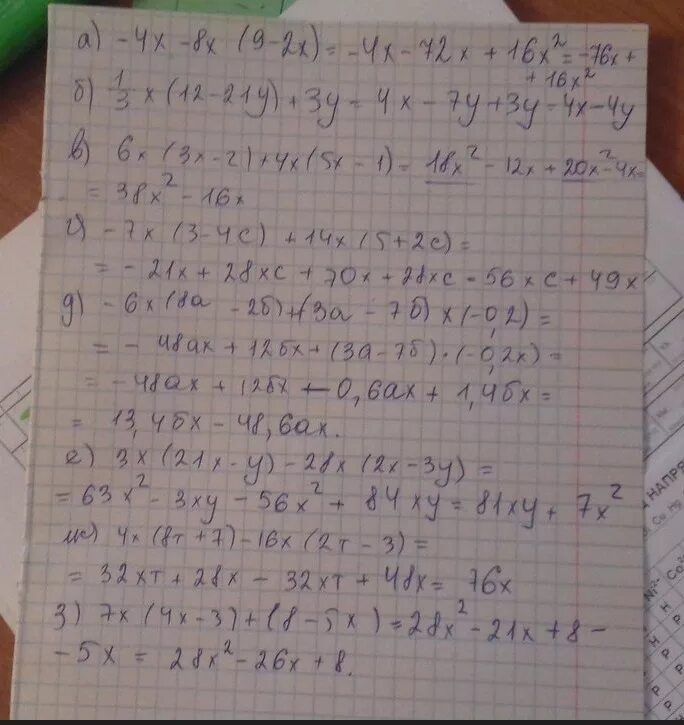 а) -4x -8x (9-2x) = -4x - 72x + 16x² = -76x +
+ 16x²
б) 1/3 x (12-21y) + 3y = 4x - 7y + 3y = 4x - 4y
в) 6x (3x-2) + 4x(5x-1) = 18x² - 12x + 20x² - 4x =
= 38x² - 16x
г) -7x (3-4c) + 14x (5+2c) =
= -21x + 28xc + 70x + 28xc = 56xc + 49x
д) -6x (8a - 2б) + (3a - 7б) x (-0,2) =
= -48ax + 12бx + (3a-7б)·(-0,2x) =
= -48ax + 12бx - 0,6ax + 1,4бx =
= 13,4бx - 48,6ax.
е) 3x (21x-y) - 28x (2x-3y) =
= 63x² - 3xy - 56x² + 84xy = 81xy + 7x²
ж) 4x (8т+7) - 16x (2т-3) =
= 32xт + 28x - 32xт + 48x = 76x
з) 7x (4x-3) + (8-5x) = 28x² - 21x + 8 -
- 5x = 28x² - 26x + 8.
НАПРЯ